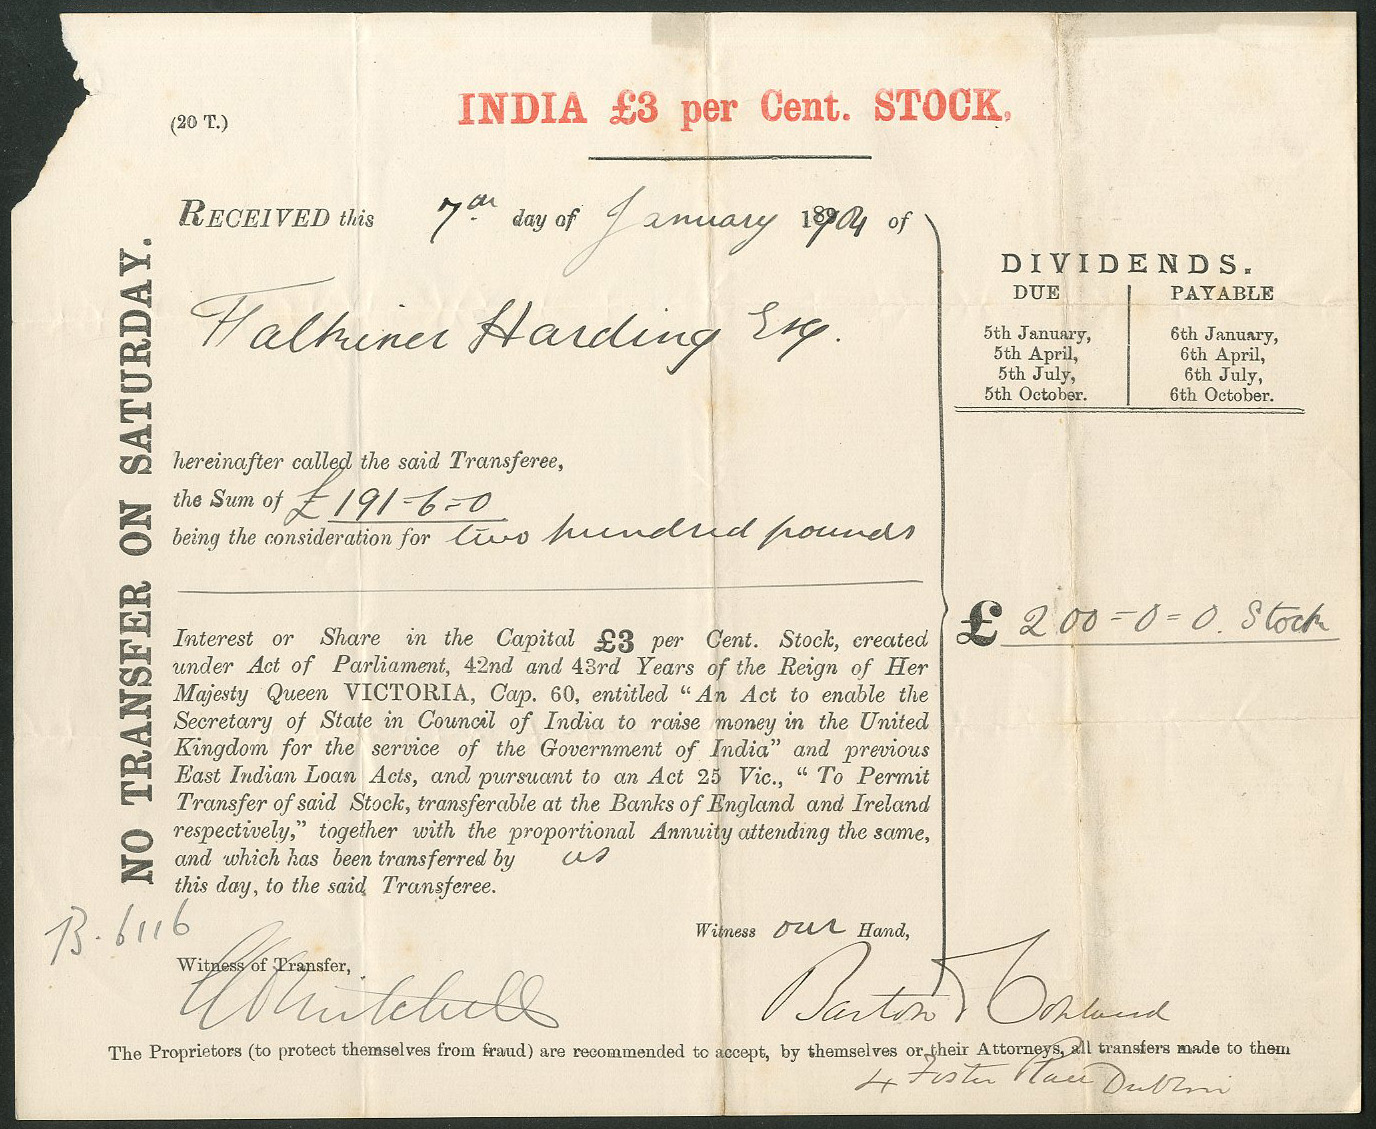 INDIA £3 per Cent. STOCK.
(20 T.)
RECEIVED this 7th day of January 1904 of
Falkiner Harding Esq.
hereinafter called the said Transferee,
the Sum of £191-6-0
being the consideration for two hundred pounds
Interest or Share in the Capital £3 per Cent. Stock, created
under Act of Parliament, 42nd and 43rd Years of the Reign of Her
Majesty Queen VICTORIA, Cap. 60, entitled “An Act to enable the
Secretary of State in Council of India to raise money in the United
Kingdom for the service of the Government of India” and previous
East Indian Loan Acts, and pursuant to an Act 25 Vic., “To Permit
Transfer of said Stock, transferable at the Banks of England and Ireland
respectively,” together with the proportional Annuity attending the same,
and which has been transferred by us
this day, to the said Transferee.
DIVIDENDS.
DUE PAYABLE
5th January, 6th January,
5th April, 6th April,
5th July, 6th July,
5th October. 6th October.
£ 200=0=0. Stock
NO TRANSFER ON SATURDAY.
B. 6116
Witness our Hand,
Witness of Transfer,
Mitchell
Barton &
The Proprietors (to protect themselves from fraud) are recommended to accept, by themselves or their Attorneys, all transfers made to them
4 Foster Place Dublin